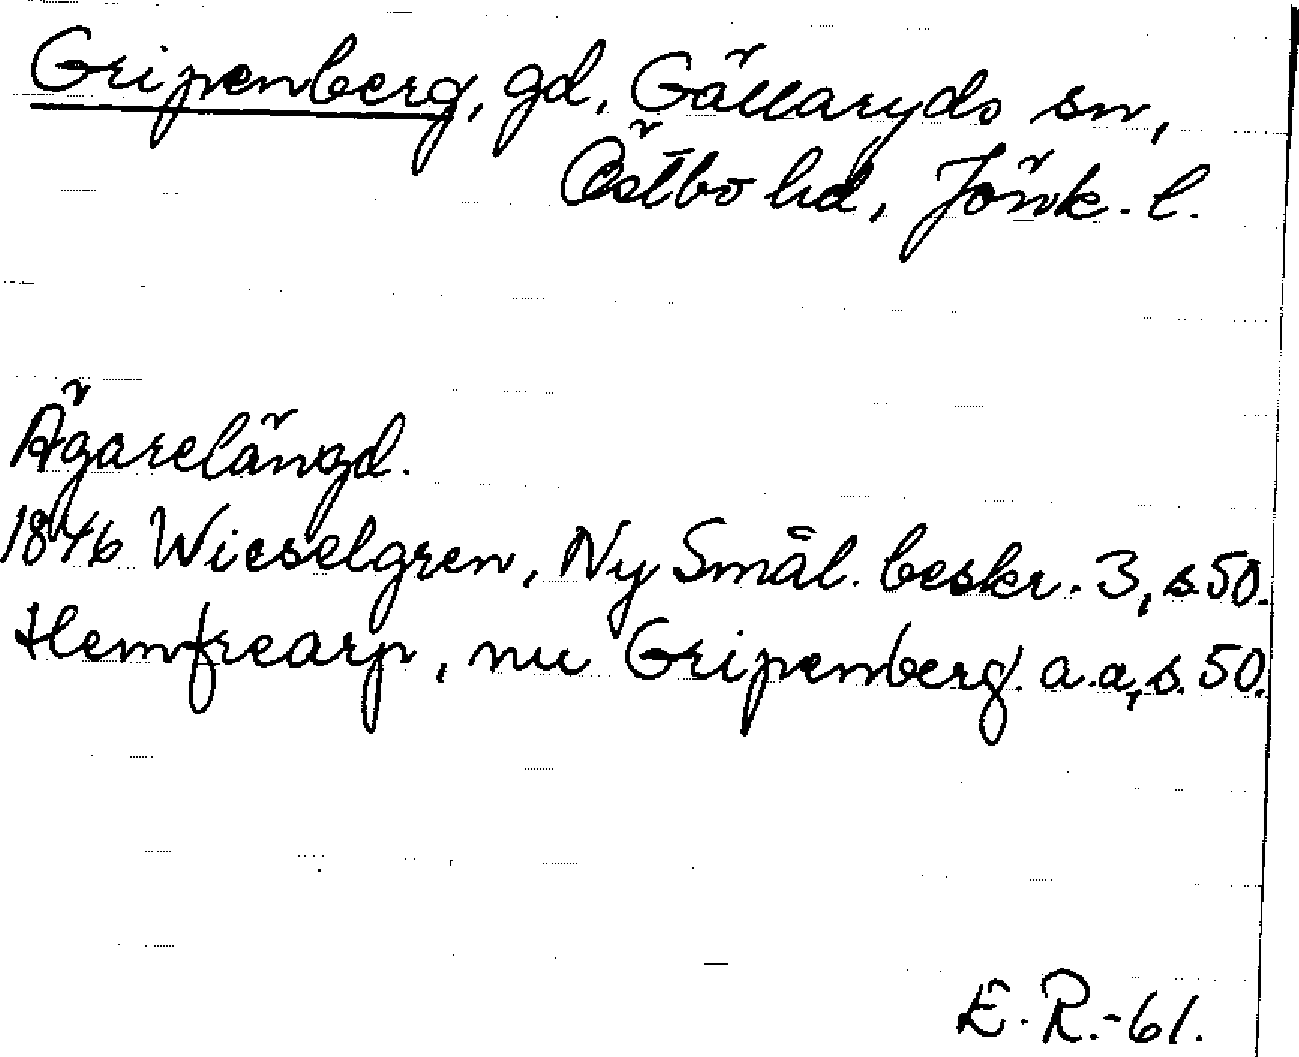 Gripenberg, gd, Gällaryds sn,
Östbo hd, Jönk. l.
Ägarelängd.
1846 Wieselgren, Ny Smål. beskr. 3, s. 50.
Hemfrearp, nu Gripenberg. a.a, s. 50.
E. R. -61.